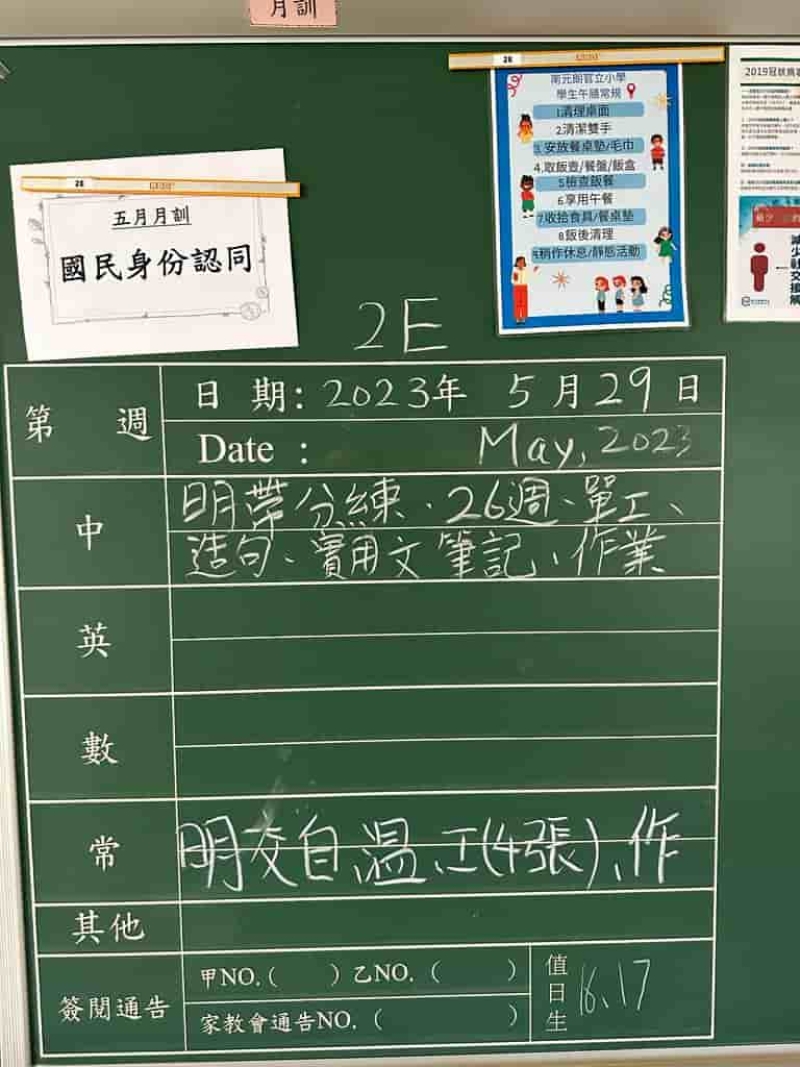 月訓
五月月訓
國民身份認同
南元朗官立小學
學生午膳常規
1.清理桌面
2.清潔雙手
3.安放餐桌墊/毛巾
4.取飯壺/餐盤/飯盒
5檢查飯餐
6.享用午餐
7.收拾食具/餐桌墊
8.飯後清理
9.稍作休息/靜態活動
2019冠狀病
減少社交接
2E
第 週
日 期：2023年 5月29日
Date : May, 2023
中
明帶分練、26週、單工、
造句、實用文筆記、作業
英
數
常
明交自溫、工(4張)、作
其他
簽閱通告
甲NO.( )乙NO. ( )
家教會通告NO. ( )
值日生
16、17